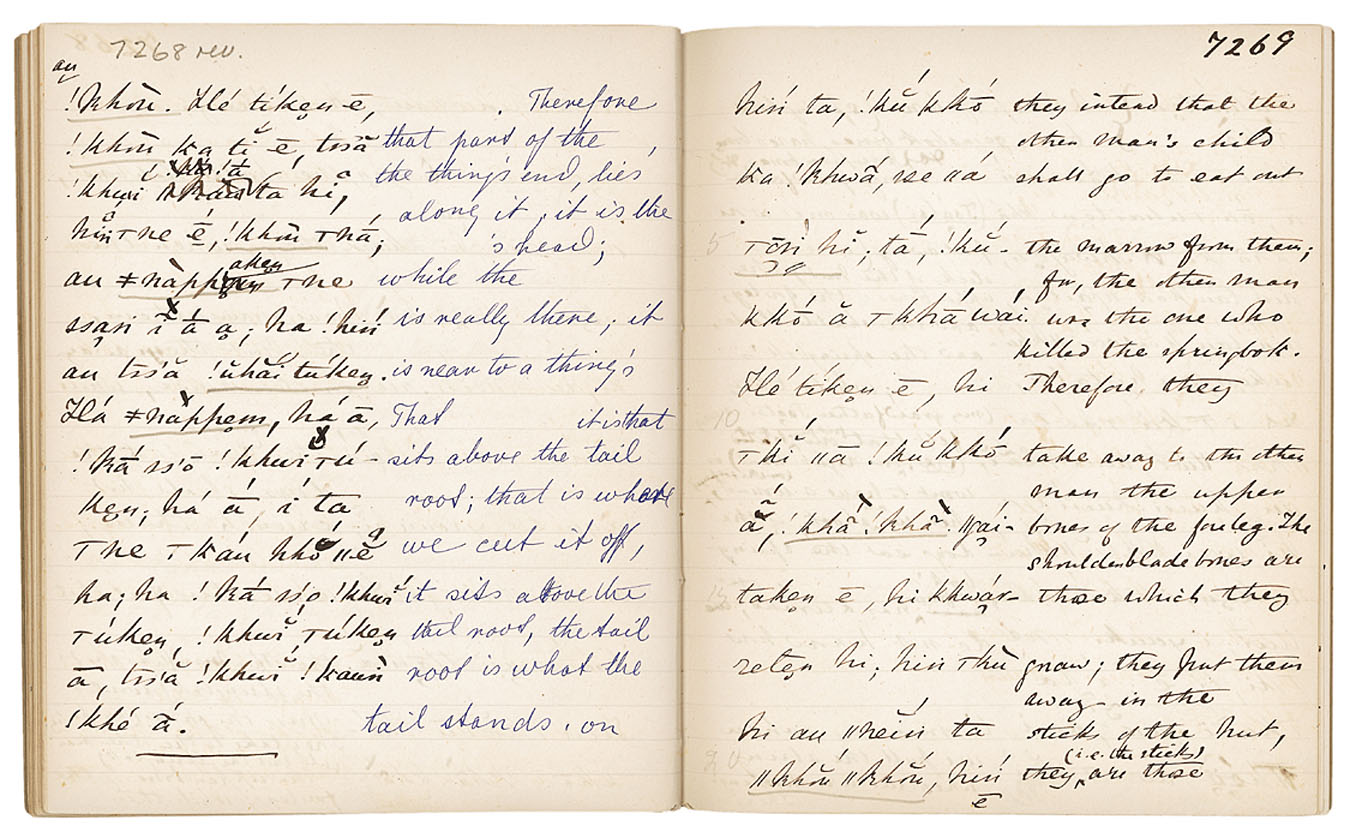 7268 rev.
au
!khōu. Hé tíkẹn ē, . Therefore
!khōu ka tĭ ē, tssā that part of the
!khwi ta hĭ, the thing's end, lies
hiń ꞇne é, !khōu ꞇná; along it; it is the
's head;
au ≠nàppẹm aken ꞇne while the
ssạri ĭ á ạ; ha !hiń is really there; it
au tss'ā !ŭhăi túkẹn. is near to a thing's
Há ≠nàppẹm, há ā, That it is that
!kắ ss'ō !khwĭ ꞇú- sits above the tail
kẹn; há á, í ta root; that is where
ꞇne ꞇkáu hhó ǁĕ we cut it off,
ha; ha !kắ ss'o !khwĭ it sits above the
ꞇúkẹn, !khwĭ ꞇúkẹn tail root, the tail
ā, tss'ā !khwĭ !kauǹ root is what the
!khé á. tail stands on
7269
hiń ta, !kŭ kkó they intend that the
other man's child
ka !khwā, se ǁá shall go to eat out
5
ꞇōri hĭ; tá, !kŭ- the marrow from them;
for, the other man
kkó ā ꞇkhá wái. was the one who
killed the springbok.
Hé tíkẹn ē, hi Therefore they
10
ꞇkĭ ǁā !kŭ kkó take away to the other
man the upper
ā, !khā !khā. ǁgái- bones of the foreleg. The
shoulderblade bones are
takẹn ē, hi khwạ́r- those which they
retẹn hi; hiń ꞇhŭ gnaw; they put them
away in the
hi au ǁneiń ta sticks of the hut,
(i.e. the sticks)
20
ǁkhōŭ ǁkhōŭ, hiń they are those
ē